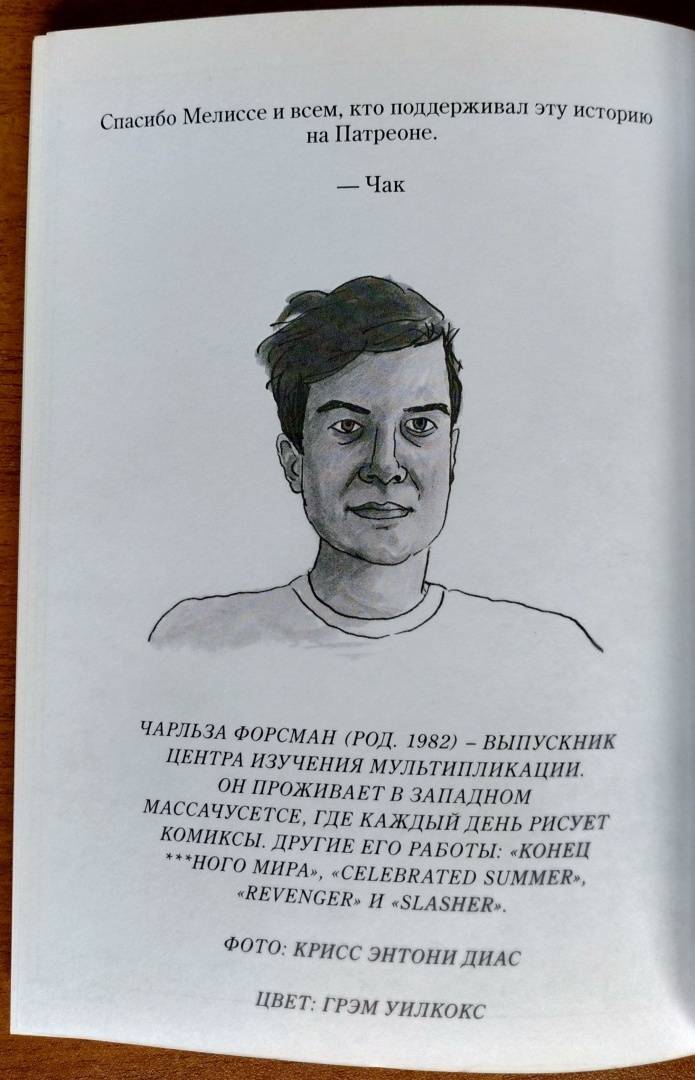 Спасибо Мелиссе и всем, кто поддерживал эту историю
на Патреоне.
— Чак
ЧАРЛЬЗА ФОРСМАН (РОД. 1982) – ВЫПУСКНИК
ЦЕНТРА ИЗУЧЕНИЯ МУЛЬТИПЛИКАЦИИ.
ОН ПРОЖИВАЕТ В ЗАПАДНОМ
МАССАЧУСЕТСЕ, ГДЕ КАЖДЫЙ ДЕНЬ РИСУЕТ
КОМИКСЫ. ДРУГИЕ ЕГО РАБОТЫ: «КОНЕЦ
***НОГО МИРА», «CELEBRATED SUMMER»,
«REVENGER» И «SLASHER».
ФОТО: КРИСС ЭНТОНИ ДИАС
ЦВЕТ: ГРЭМ УИЛКОКС